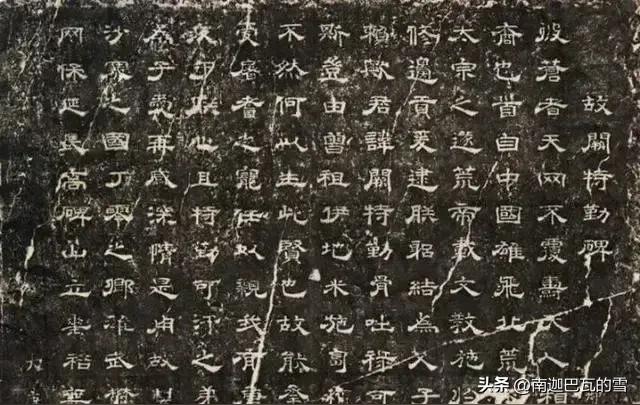 故闕特勤碑
彼蒼者天罔不覆燾天人相
裔也首自中國雄飛北荒
太宗之遂荒帝載文教施於
修邊貢爰逮朕躬結為父子
賴歟君諱闕特勤骨咄祿可
斯豈由曾祖伊地米施匐積
不然何以生此賢也故能承
受屠耆之寵任以親我有唐
疚于朕心且特勤可汗之弟
為子愛再感深情是用故
沙塞之國丁零之鄉雄武鬱
罔保延長高碑山立垂裕無
头条 @南迦巴瓦的雪